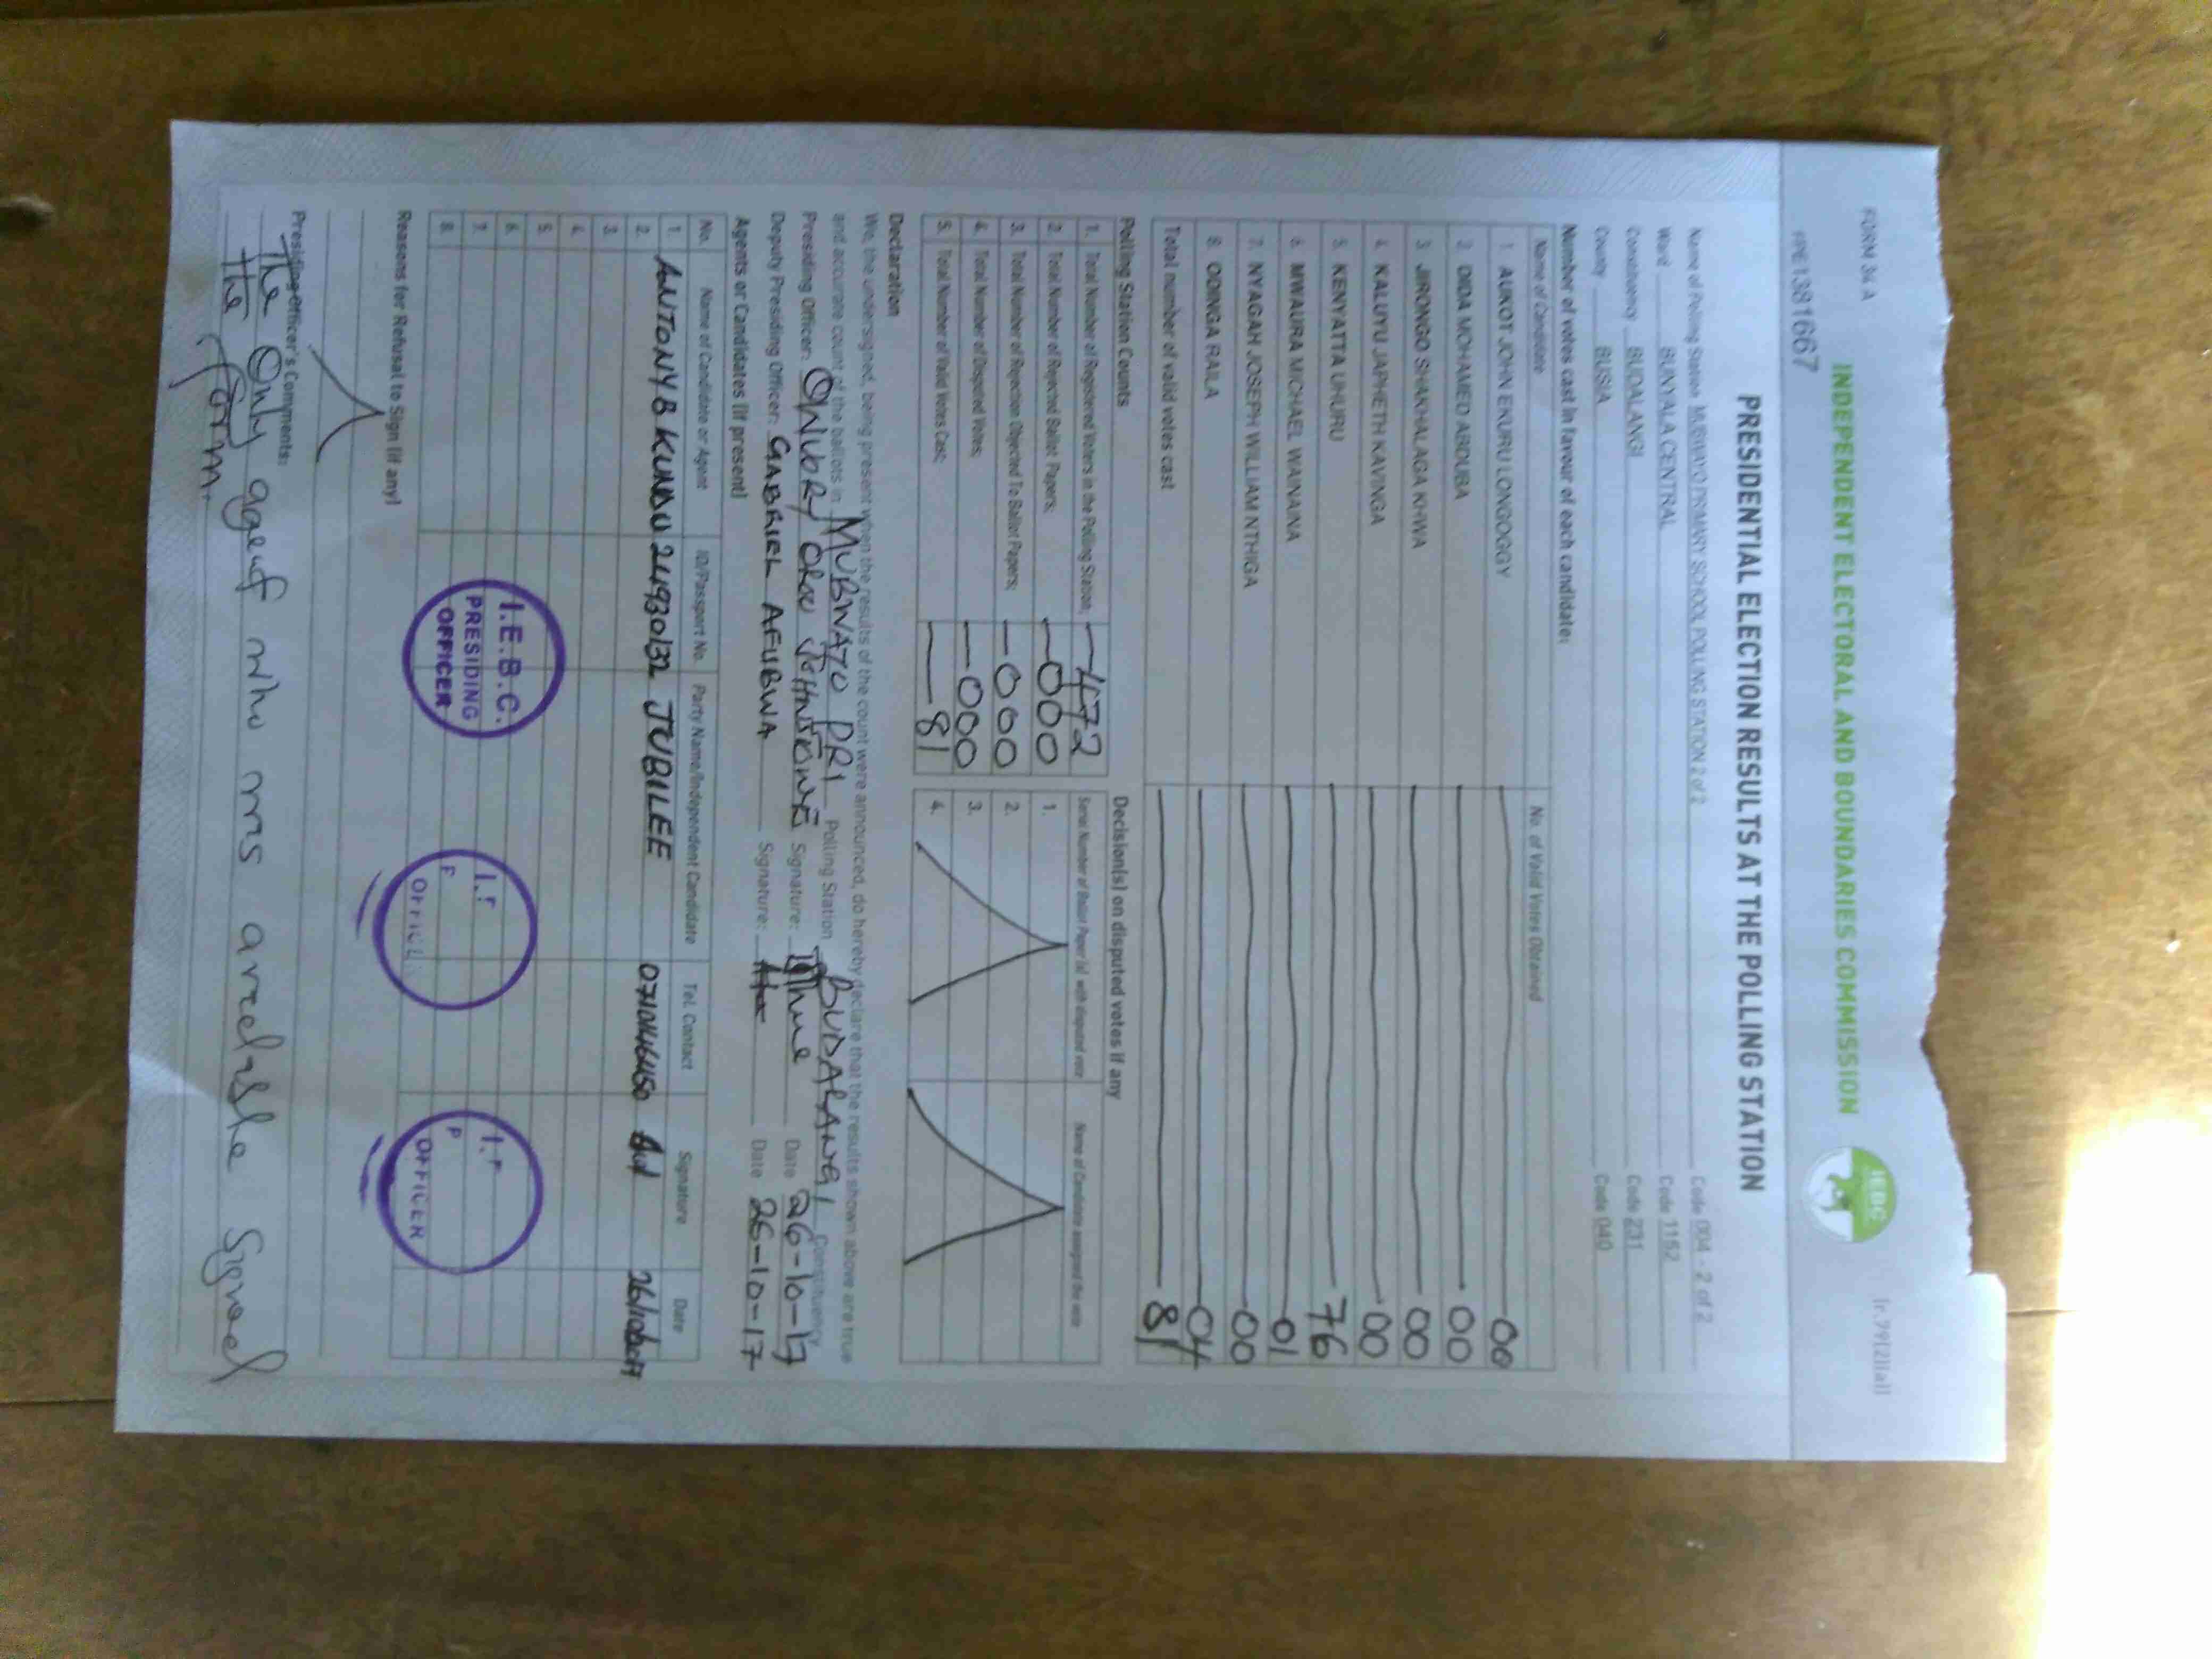 FORM 34 A
[r.99(2)(a)]
INDEPENDENT ELECTORAL AND BOUNDARIES COMMISSION
IEBC
PPE1381667
PRESIDENTIAL ELECTION RESULTS AT THE POLLING STATION
Name of Polling Station MUBWAYO PRIMARY SCHOOL POLLING STATION 2 of 2 Code 004 - 2 of 2
Ward BUNYALA CENTRAL Code 1152
Constituency BUDALANGI Code 231
County BUSIA Code 040
Number of votes cast in favour of each candidate:
Name of Candidate No. of Valid Votes Obtained
1. AUKOT JOHN EKURU LONGOGGY 00
2. DIDA MOHAMED ABDUBA 00
3. JIRONGO SHAKHALAGA KHWA 00
4. KALUYU JAPHETH KAVINGA 00
5. KENYATTA UHURU 76
6. MWAURA MICHAEL WAINAINA 01
7. NYAGAH JOSEPH WILLIAM NTHIGA 00
8. ODINGA RAILA 04
Total number of valid votes cast 81
Polling Station Counts
1. Total Number of Registered Voters in the Polling Station; 472
2. Total Number of Rejected Ballot Papers; 000
3. Total Number of Rejection Objected To Ballot Papers; 000
4. Total Number of Disputed Votes; 000
5. Total Number of Valid Votes Cast; 81
Decision(s) on disputed votes if any
Serial Number of Ballot Paper (s) with disputed vote Name of Candidate assigned the vote
1.
2.
3.
4.
Declaration
We, the undersigned, being present when the results of the count were announced, do hereby declare that the results shown above are true
and accurate count of the ballots in MUBWAYO PRI Polling Station BUDALANGI Constituency
Presiding Officer: Signature: Date 26-10-17
Deputy Presiding Officer: GABRIEL AFUBWA Signature: Date 26-10-17
Agents or Candidates (if present)
No. Name of Candidate or Agent ID/Passport No. Party Name/Independent Candidate Tel. Contact Signature Date
1. ANTONY B KUNDU 24930132 JUBILEE
2.
3.
4.
5.
6.
7.
8.
I.E.B.C.
PRESIDING
OFFICER
OFFICER
Reasons for Refusal to Sign (if any)
Presiding Officer's Comments:
The Only agent who was available signed
the form.